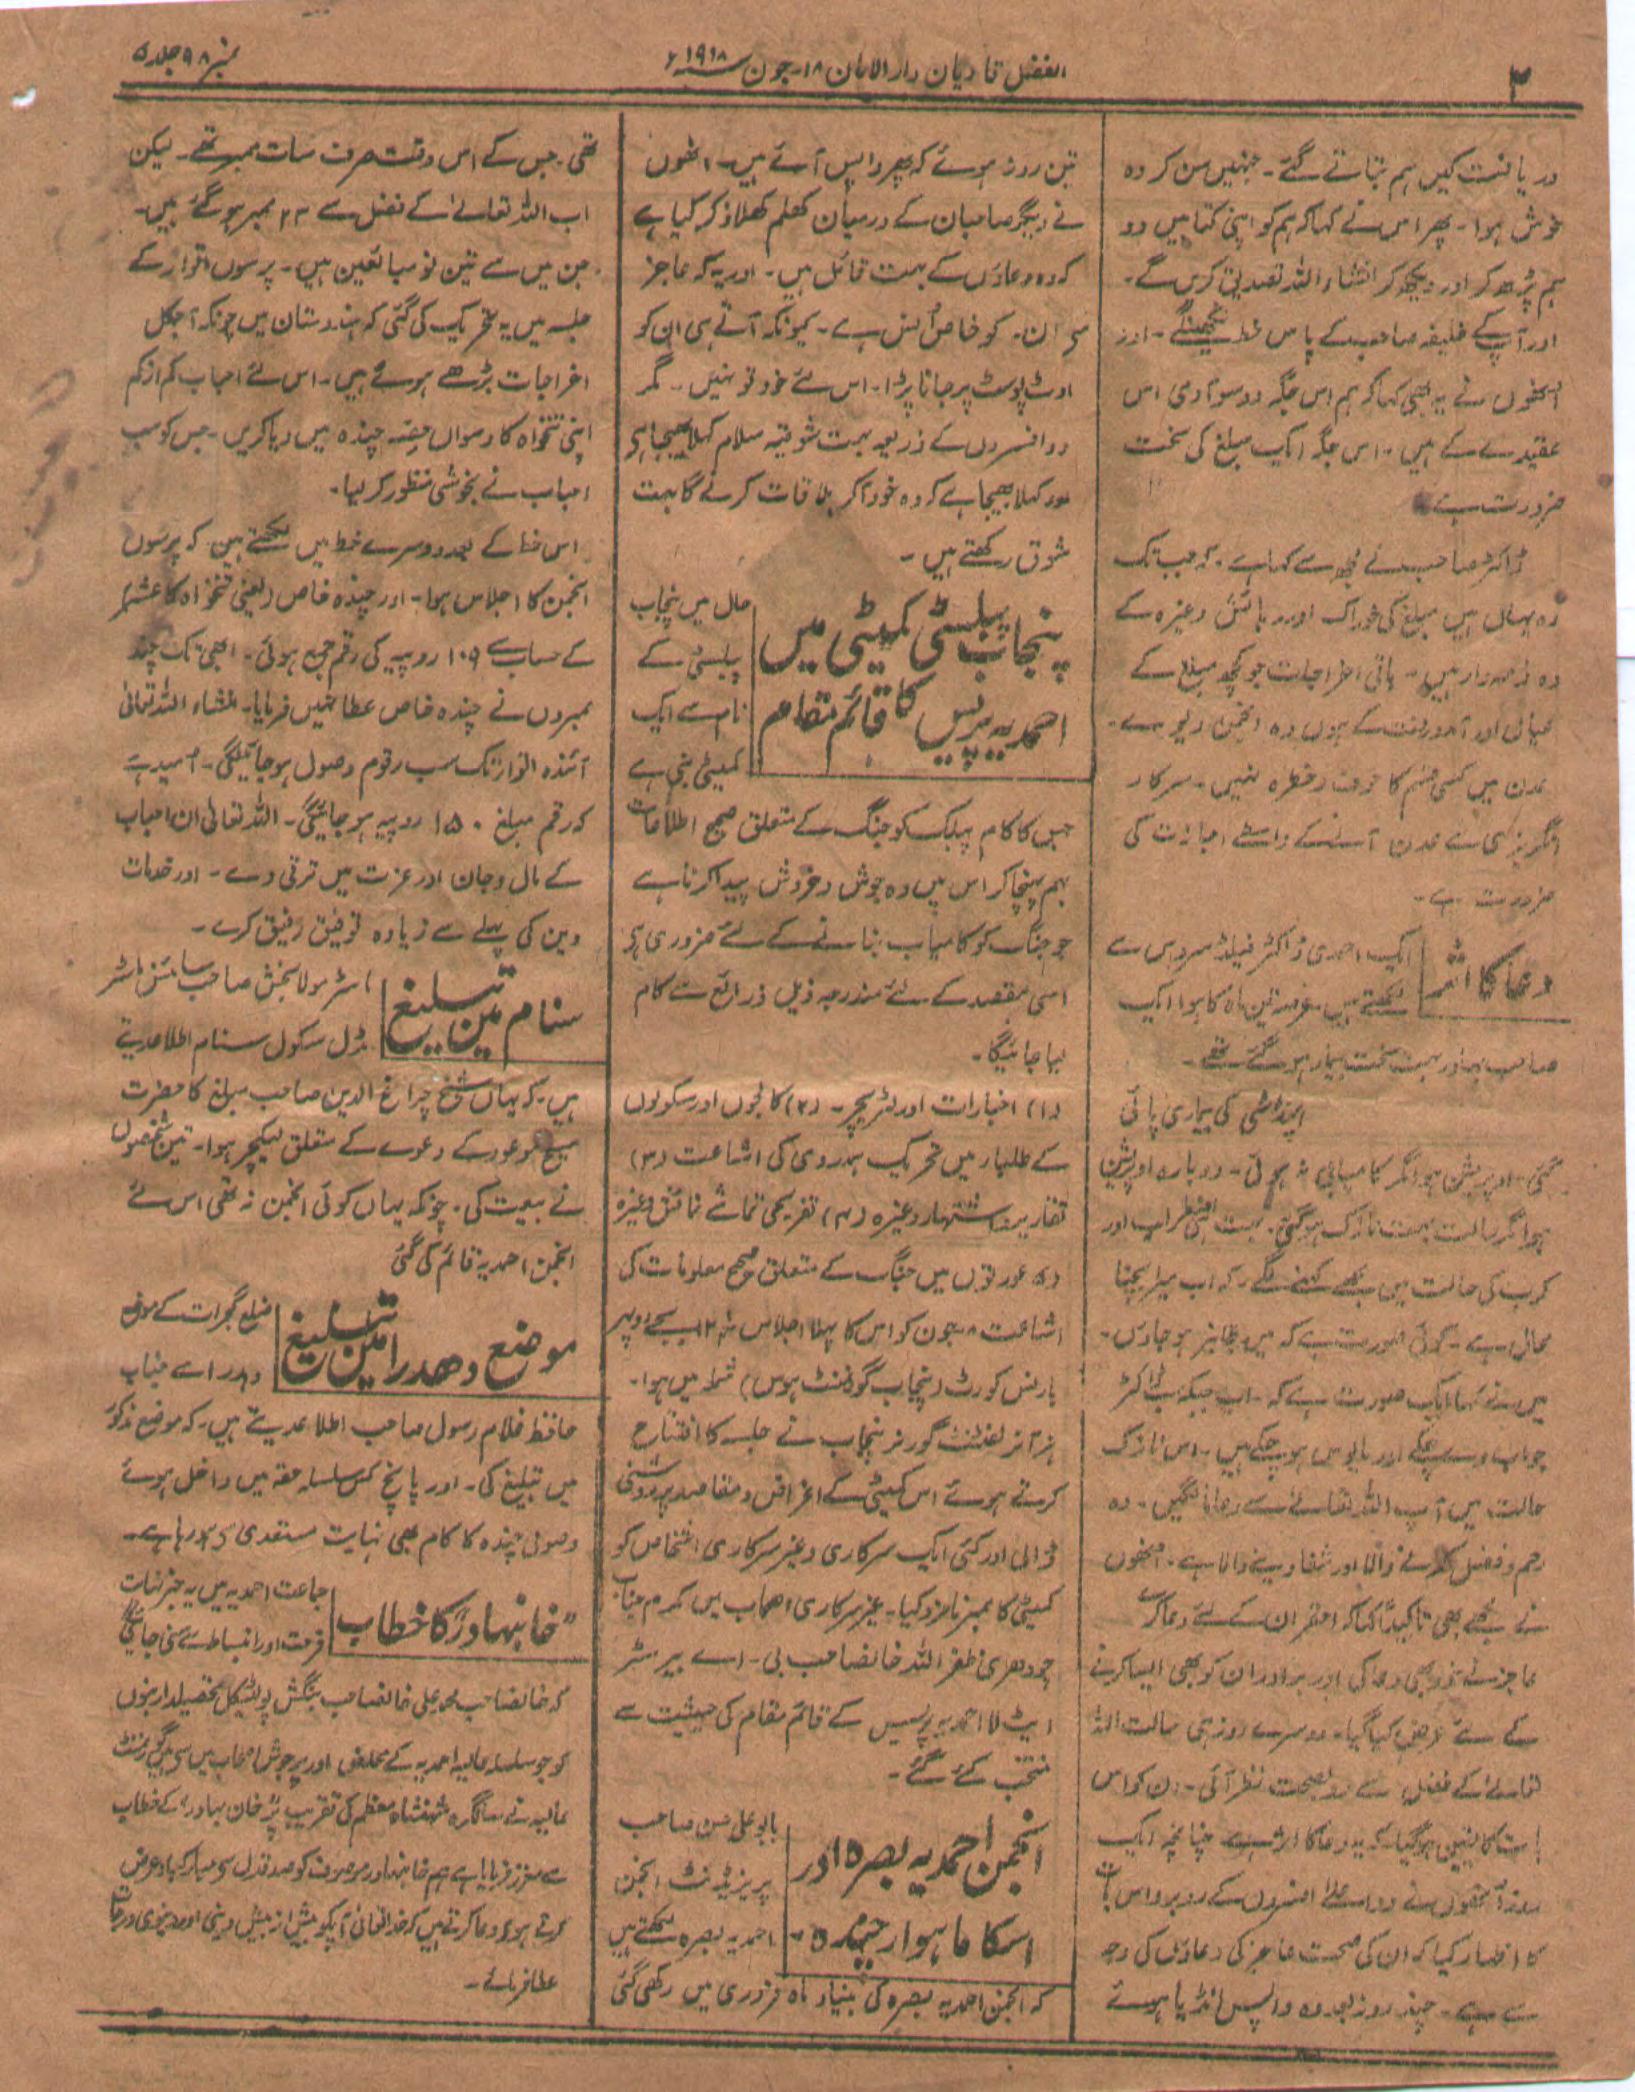 ۴
الفضل قادیان دارالامان ۱۸۔ جون ۱۹۱۸ء
نمبر ۹۸ جلد ۵
دریافت کیں ہم بتاتے گئے۔ جنہیں سن کر وہ
خوش ہوا۔ پھر اس نے کہا کہ ہم کو اپنی کتابیں دو
ہم پڑھ کر اور دیکھ کر انشاء اللہ تصدیق کریں گے۔
اور آپ کے خلیفہ صاحب کے پاس خط بھیجینگے۔ اور
انھوں نے یہ بھی کہا کہ ہم اس جگہ دو سو آدمی اس
عقیدے کے ہیں۔ اس جگہ ایک مبلغ کی سخت
ضرورت ہے
ڈاکٹر صاحب نے مجھ سے کہا ہے۔ کہ جب تک
وہ یہاں ہیں مبلغ کی خوراک اور رہائش وغیرہ کے
وہ ذمہ وار ہیں۔ باقی اخراجات جو کچھ مبلغ کے
عیال اور آمدورفت کے ہوں وہ انجمن دیوے۔
عدن میں کسی قسم کا خوف و خطرہ نہیں۔ سرکار
انگریزی سے عدن آنے کے واسطے اجازت کی
ضرورت ہے۔
دعا کا اثر
ایک احمدی ڈاکٹر فیلڈ سروس سے
لکھتے ہیں۔ عرصہ تین ماہ کا ہوا ایک
صاحب بہادر بہت سخت بیمار ہو گئے تھے۔
اپنڈاسٹی کی بیماری پائی
گئی۔ اوپریشن ہوا مگر کامیابی نہ ہوئی۔ دوبارہ اوپریشن
ہوا مگر حالت بہت نازک ہو گئی۔ بہت اضطراب اور
کرب کی حالت میں مجھے کہنے لگے۔ کہ اب میرا بچنا
محال ہے۔ کوئی صورت ہے کہ میں جانبر ہو جاؤں۔
میں نے کہا ایک صورت ہے کہ۔ اب جبکہ سب ڈاکٹر
جواب دے چکے اور مایوس ہو چکے ہیں۔ اس نازک
حالت میں آپ اللہ تعالےٰ سے دعا مانگیں۔ وہ
رحم و فضل کرنے والا اور شفا دینے والا ہے۔ انھوں
نے مجھے بھی تاکیداً کہا کہ احقر ان کے لئے دعا کرے
عاجز نے خود بھی دعا کی اور برادران کو بھی ایسا کرنے
کے لئے عرض کیا گیا۔ دوسرے روز ہی حالت اللہ
تعالےٰ کے فضل سے روبصحت نظر آئی۔ ان کو اس
بات کا یقین ہو گیا۔ کہ یہ دعا کا اثر ہے چنانچہ ایک
روز انھوں نے دو اعلےٰ افسروں کے روبرو اس بات
کا اظہار کیا کہ ان کی صحت عاجز کی دعاؤں کی وجہ
سے ہے۔ چند روز بعد وہ واپس انڈیا ہوئے
تین روز ہوئے کہ پھر واپس آئے ہیں۔ انھوں
نے دیگر صاحبان کے درمیان کھلم کھلا ذکر کیا ہے
کہ وہ دعاؤں کے بہت قائل ہیں۔ اور یہ کہ عاجز
سے ان۔ کو خاص اُنس ہے۔ کیونکہ آتے ہی ان کو
اوٹ پوسٹ پر جانا پڑا۔ اس لئے خود تو نہیں۔ مگر
دو افسروں کے ذریعہ بہت شوقیہ سلام کہلا بھیجا ہے
اور کہلا بھیجا ہے کہ وہ خود آکر ملاقات کرنے کا بہت
شوق رکھتے ہیں۔
پنجاب پبلسٹی کمیٹی میں
احمدیہ پریس کا قائم مقام
حال میں پنجاب
پبلسٹی کے
نام سے ایک
کمیٹی بنی ہے
جس کا کام پبلک کو جنگ کے متعلق صحیح اطلاعات
بہم پہنچا کر اس میں وہ جوش و خروش پیدا کرنا ہے
جو جنگ کو کامیاب بنانے کے لئے ضروری ہے
اسی مقصد کے لئے مندرجہ ذیل ذرائع سے کام
لیا جائیگا۔
(۱) اخبارات اور لٹریچر۔ (۲) کالجوں اور سکولوں
کے طلباء میں تحریک ہمدردی کی اشاعت (۳)
تقاریر و اشتہار وغیرہ (۴) تفریحی تماشے نمائش وغیرہ
(۵) عورتوں میں جنگ کے متعلق صحیح معلومات کی
اشاعت ۸ جون کو اس کا پہلا اجلاس ۱۲ بجے دوپہر
بارنس کورٹ (پنجاب گورنمنٹ ہوس) شملہ میں ہوا۔
ہز آنر لفٹنٹ گورنر پنجاب نے جلسہ کا افتتاح
کرتے ہوئے اس کمیٹی کے اغراض و مقاصد پر روشنی
ڈالی اور کئی ایک سرکاری و غیر سرکاری اشخاص کو
کمیٹی کا ممبر نامزد کیا۔ غیر سرکاری اصحاب میں مکرم جناب
چودھری ظفر اللہ خانصاحب بی۔ اے بیرسٹر
ایٹ لا احمدیہ پریس کے قائم مقام کی حیثیت سے
منتخب کئے گئے۔
انجمن احمدیہ بصرہ اور
اسکا ماہوار چندہ۔
بابو علی حسن صاحب
پریزیڈنٹ انجمن
احمدیہ بصرہ لکھتے ہیں
کہ انجمن احمدیہ بصرہ کی بنیاد ماہ فروری میں رکھی گئی
تھی۔ جس کے اس وقت صرف سات ممبر تھے۔ لیکن
اب اللہ تعالےٰ کے فضل سے ۲۳ ممبر ہو گئے ہیں۔
جن میں سے تین نو مبائعین ہیں۔ پرسوں اتوار کے
جلسہ میں یہ تحریک کی گئی کہ ہندوستان میں چونکہ آجکل
اخراجات بڑھے ہوئے ہیں۔ اس لئے احباب کم از کم
اپنی تنخواہ کا دسواں حصہ چندہ میں دیا کریں۔ جس کو سب
احباب نے بخوشی منظور کر لیا۔
اس خط کے بعد دوسرے خط میں لکھتے ہیں۔ کہ پرسوں
انجمن کا اجلاس ہوا۔ اور چندہ خاص (یعنی تنخواہ کا عشر)
کے حساب سے ۱۰۹ روپیہ کی رقم جمع ہوئی۔ ابھی تک چند
ممبروں نے چندہ خاص عطا نہیں فرمایا۔ انشاء اللہ تعالیٰ
آئندہ اتوار تک سب رقوم وصول ہو جائیگی۔ امید ہے
کہ رقم مبلغ ۱۵۰ روپیہ ہو جائیگی۔ اللہ تعالیٰ ان احباب
کے مال و جان اور عزت میں ترقی دے۔ اور خدمات
دین کی پہلے سے زیادہ توفیق رفیق کرے۔
سنام میں تبلیغ
ماسٹر مولا بخش صاحب سائنس ماسٹر
مڈل سکول سنام اطلاع دیتے
ہیں۔ کہ یہاں شیخ چراغ الدین صاحب مبلغ کا حضرت
مسیح موعود کے دعوے کے متعلق لیکچر ہوا۔ تین شخصوں
نے بیعت کی۔ چونکہ یہاں کوئی انجمن نہ تھی اس لئے
انجمن احمدیہ قائم کی گئی
موضع دھدرا میں تبلیغ
ضلع گجرات کے موضع
دھدرا سے جناب
حافظ غلام رسول صاحب اطلاع دیتے ہیں۔ کہ موضع مذکور
میں تبلیغ کی۔ اور پانچ کس سلسلہ حقہ میں داخل ہوئے
وصولی چندہ کا کام بھی نہایت مستعدی سے ہو رہا ہے۔
”خانبہادر“ کا خطاب
جماعت احمدیہ میں یہ خبر نہایت
فرحت اور انبساط سے سنی جائیگی
کہ خانصاحب محمد علی خانصاحب بنگش پولٹیکل تحصیلدار بنوں
کو جو سلسلہ عالیہ احمدیہ کے مخلص اور پرجوش اصحاب میں سے ہیں گورنمنٹ
عالیہ نے سالگرہ شہنشاہ معظم کی تقریب پر خان بہادر کے خطاب
سے معزز فرمایا ہے ہم خانبہادر موصوف کو صدق دل سے مبارکباد عرض
کرتے ہوئے دعا کرتے ہیں کہ خدا تعالیٰ آپکو بیش از بیش دینی اور دنیوی درجات
عطا فرمائے۔